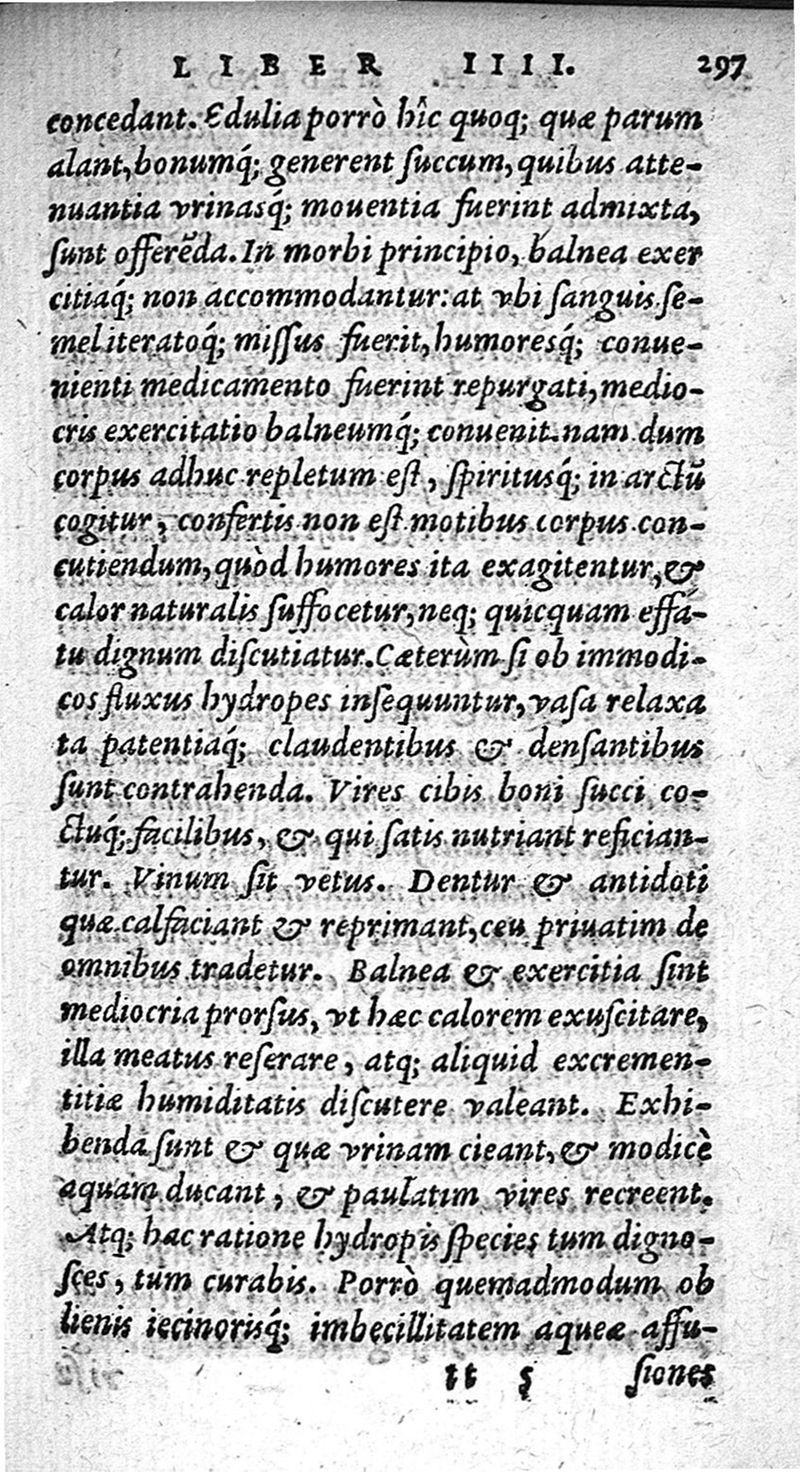 LIBER IIII. 297
concedant. Edulia porrò hîc quoq; quæ parum
alant, bonumq́; generent ſuccum, quibus atte-
nuantia vrinasq́; mouentia fuerint admixta,
ſunt offerẽda. In morbi principio, balnea exer
citiaq́; non accommodantur: at vbi ſanguis ſe-
mel iteratoq́; miſſus fuerit, humoresq́; conue-
nienti medicamento fuerint repurgati, medio-
cris exercitatio balneumq́; conuenit. nam dum
corpus adhuc repletum eſt, ſpiritusq́; in arctũ
cogitur, confertis non eſt motibus corpus con-
cutiendum, quòd humores ita exagitentur, &
calor naturalis ſuffocetur, neq; quicquam effá-
tu dignum diſcutiatur. Cæterùm ſi ob immodi-
cos fluxus hydropes inſequuntur, vaſa relaxa
ta patentiaq́; claudentibus & denſantibus
ſunt contrahenda. Vires cibis boni ſucci co-
ctuq́; facilibus, & qui ſatis nutriant refician-
tur. Vinum ſit vetus. Dentur & antidoti
quæ calfaciant & reprimant, ceu priuatim de
omnibus tradetur. Balnea & exercitia ſint
mediocria prorſus, vt hæc calorem exuſcitare,
illa meatus reſerare, atq; aliquid excremen-
titiæ humiditatis diſcutere valeant. Exhi-
benda ſunt & quæ vrinam cieant, & modicè
aquam ducant, & paulatim vires recreent.
Atq; hac ratione hydropis ſpecies tum digno-
ſces, tum curabis. Porrò quemadmodum ob
lienis iecinorisq́; imbecillitatem aqueæ affu-
tt 5 ſiones